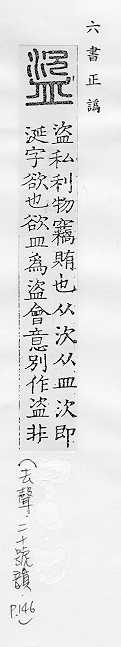 六書正譌
盜
盜私利物竊賄也从㳄从皿㳄即
涎字欲也欲皿為盜會意別作盗非
(去聲．二十號韻P.146)